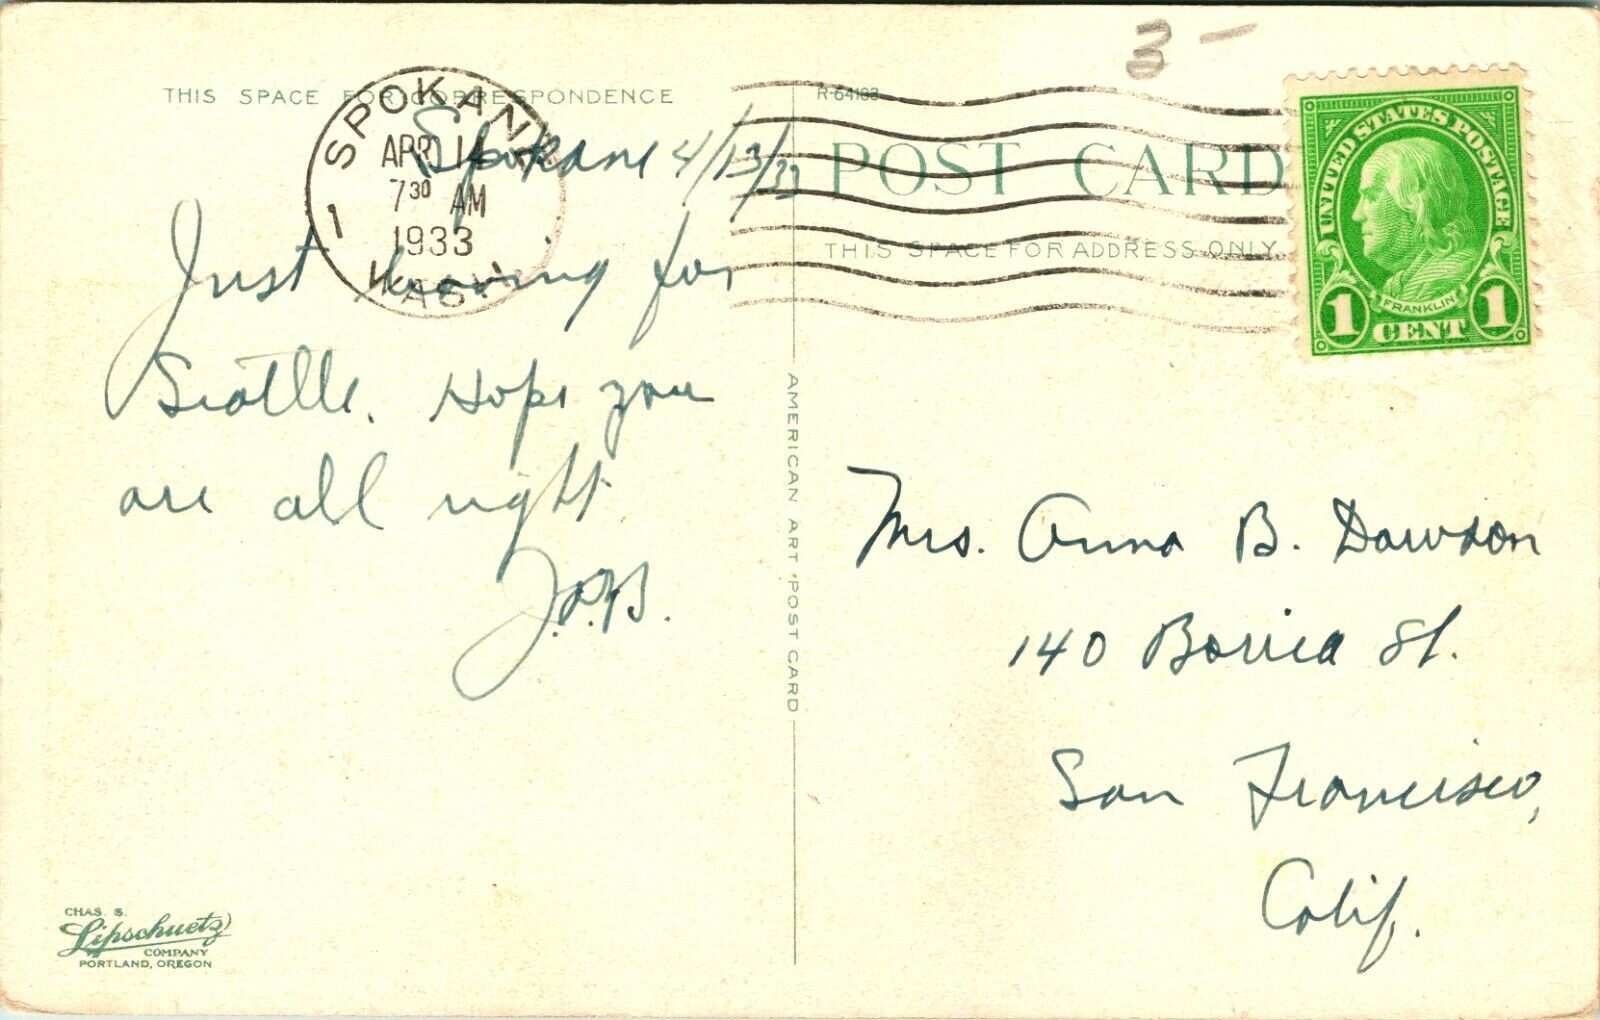 3 –
THIS SPACE FOR CORRESPONDENCE
SPOKANE
APR 14
7 30 AM
1933
1
WASH.
Spokane 4/13/33
Just leaving for
Seattle. Hope you
are all right
J.P.B.
CHAS. S.
Lipschuetz
COMPANY
PORTLAND, OREGON
AMERICAN ART POST CARD
R-54183
POST CARD
THIS SPACE FOR ADDRESS ONLY.
UNITED STATES POSTAGE
FRANKLIN
1 CENT 1
Mrs. Anna B. Dawson
140 Borica St.
San Francisco,
Calif.